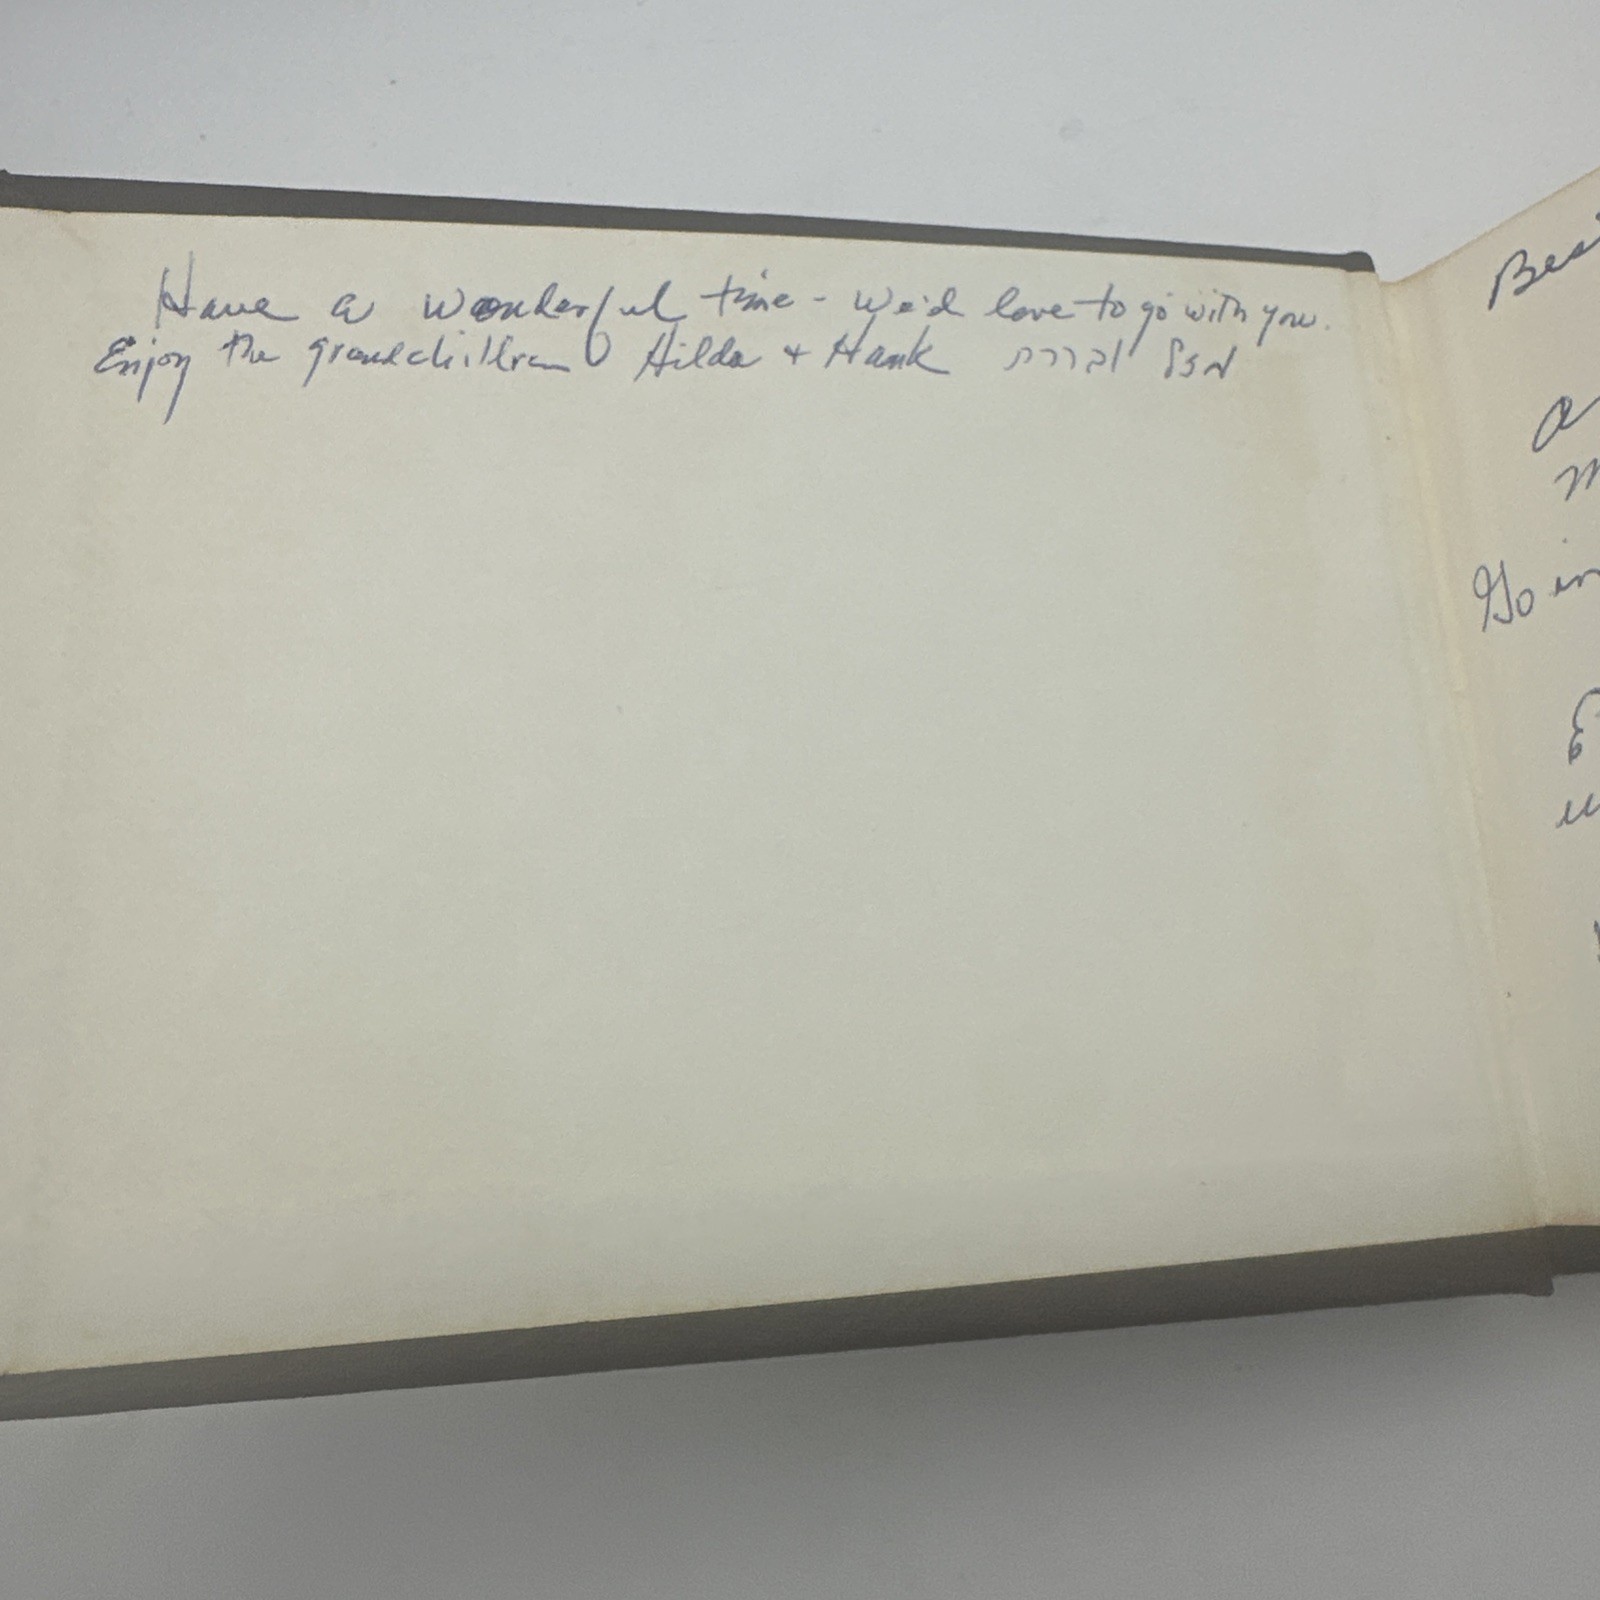 Have a wonderful time - We'd love to go with you.
Enjoy the grandchildren Hilda + Hank מזל וברכה
Go in